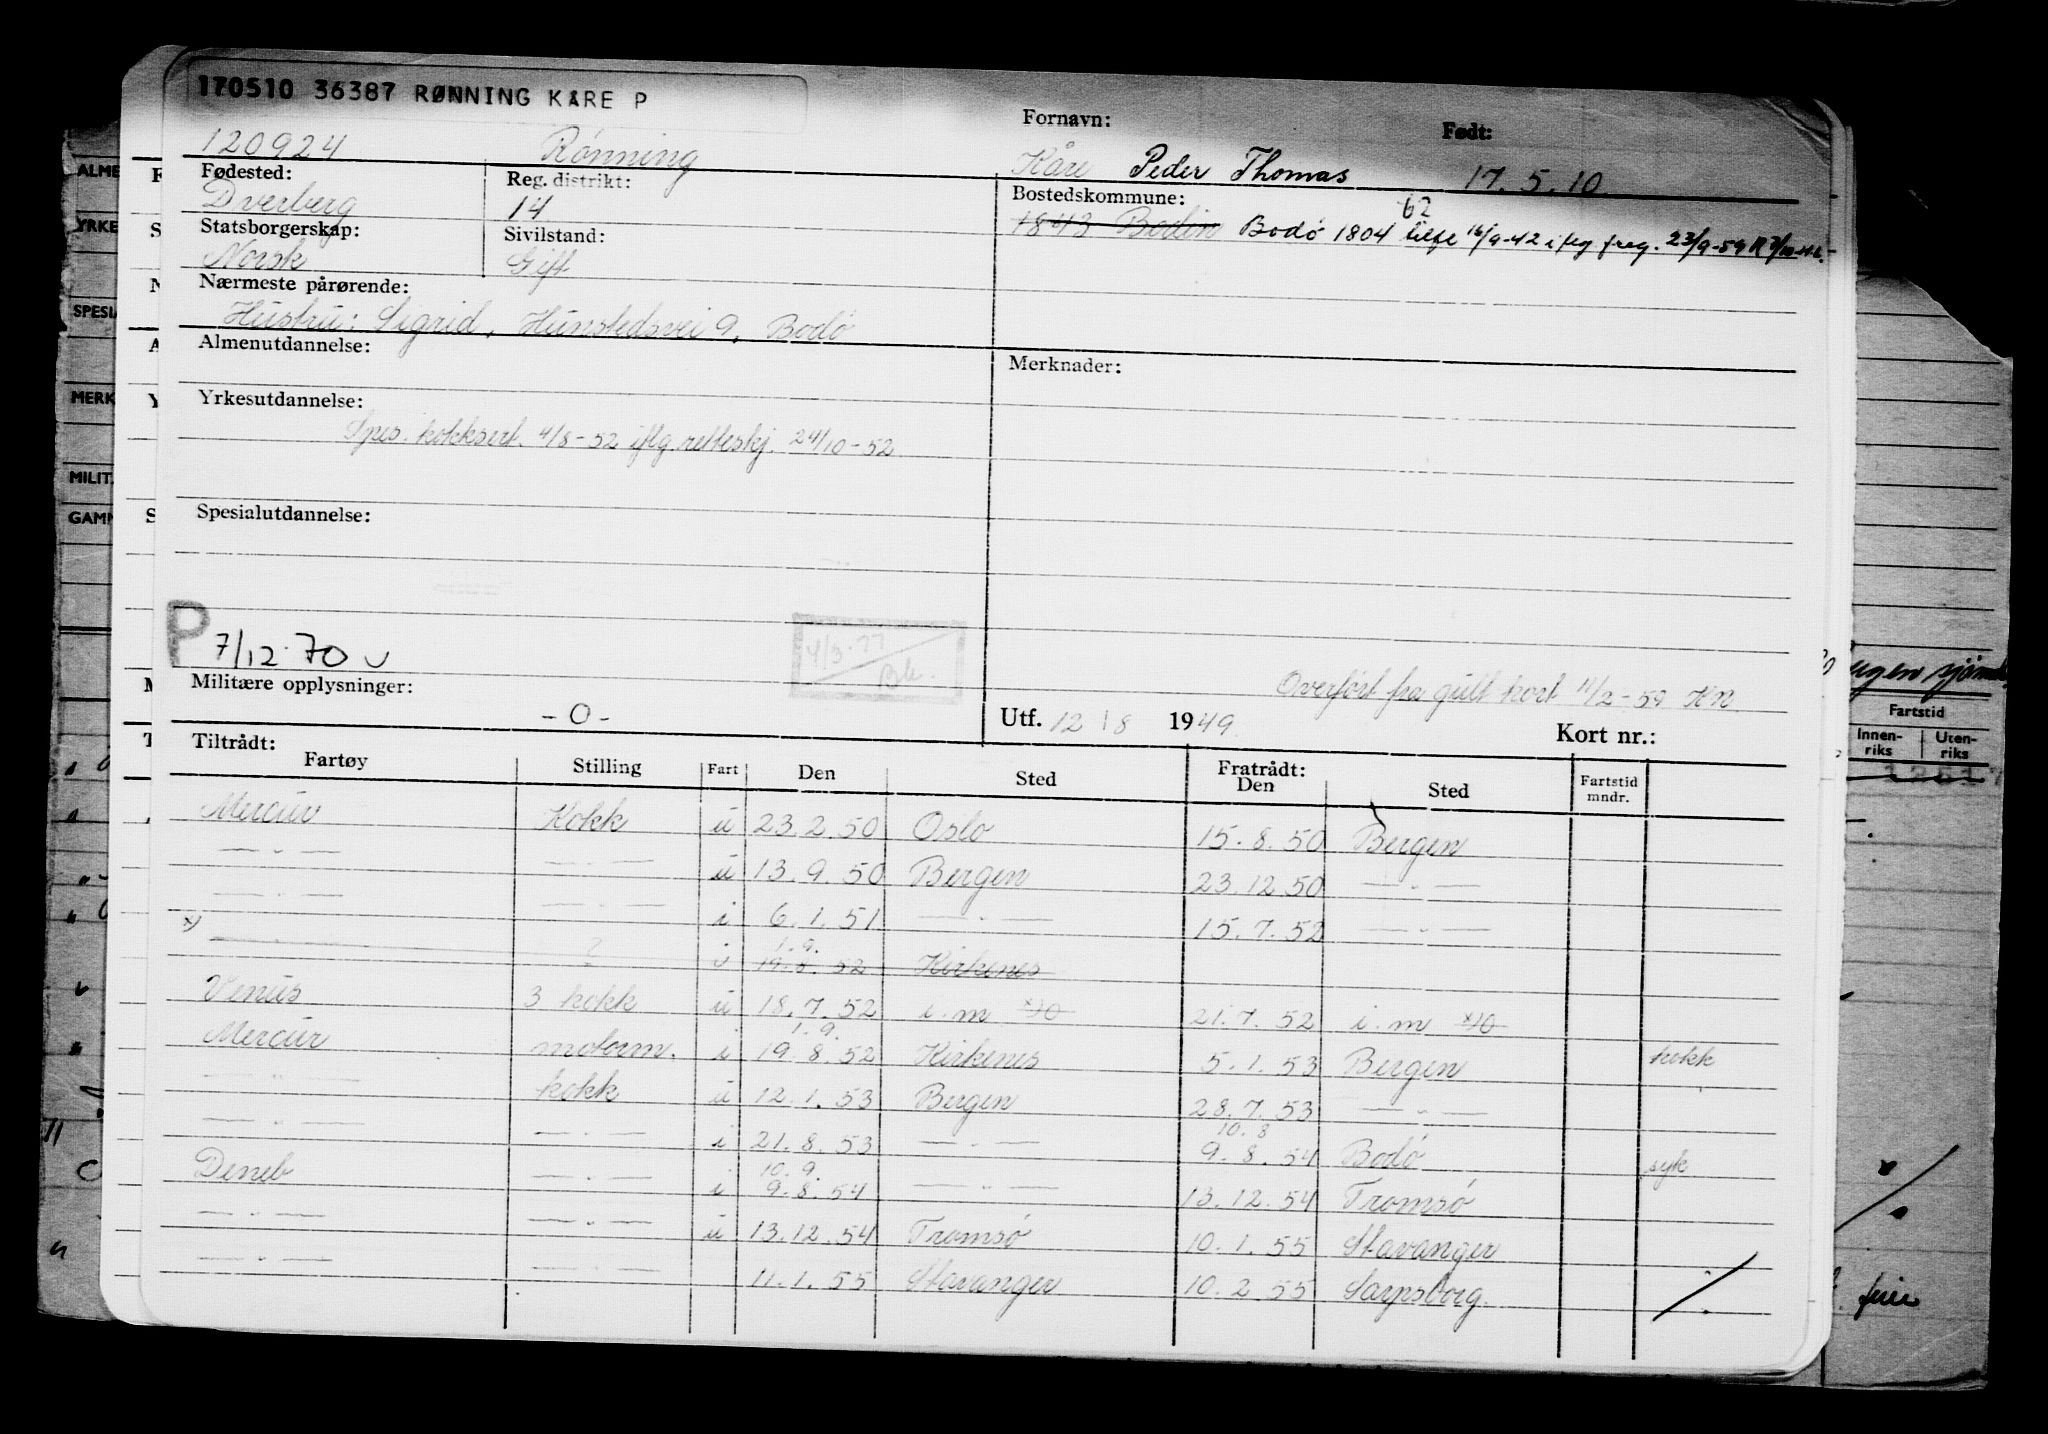 170510 36387 RØNNING KÅRE P
120924 Rønning
Fornavn: Født:
Kåre Peder Thomas 17.5.10
Fødested: Reg. distrikt: Bostedskommune:
Dverberg 14 1843 Bodin Bodø 1804
62
Statsborgerskap: Sivilstand:
Norsk Gift
Nærmeste pårørende:
Hustru: Sigrid, Hunstedsvei 9, Bodø
Almenutdannelse: Merknader:
Yrkesutdannelse:
Spes. kokksert. 4/8-52 iflg. rulleskj. 24/10-52
Spesialutdannelse:
P 7/12-70
4/3-77
Militære opplysninger: Overført fra gult kort 11/2-59 KN.
-0- Utf. 12/8 1949. Kort nr.:
Tiltrådt: Fratrådt:
Fartøy Stilling Fart Den Sted Den Sted Fartstid mndr.
Mercur Kokk u 23.2.50 Oslo 15.8.50 Bergen
— " — — " — u 13.9.50 Bergen 23.12.50 — " —
— " — — " — i 6.1.51 — " — 15.7.52 — " —
x) 1.9.
— " — ? i 19.8.52 Kirkenes
Venus 3 kokk u 18.7.52 i.m x)0 21.7.52 i.m x)0
1.9.
Mercur motorm. i 19.8.52 Kirkenes 5.1.53 Bergen kokk
— " — kokk u 12.1.53 Bergen 28.7.53 — " —
10.8
— " — — " — i 21.8.53 — " — 9.8.54 Bodø syk
10.9.
Deneb — " — i 9.8.54 — " — 13.12.54 Tromsø
— " — — " — u 13.12.54 Tromsø 10.1.55 Stavanger
— " — — " — 11.1.55 Stavanger 10.2.55 Sarpsborg. ·/·
ALME
YRKE
SPESI
MERK
MILIT.
GAMM
Fartstid
Innenriks Utenriks